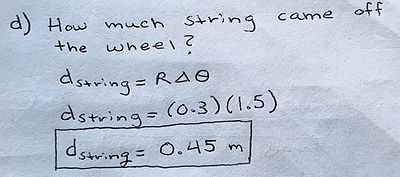 d) How much string came off
the wheel?
dstring = RΔΘ
dstring = (0.3)(1.5)
dstring = 0.45 m